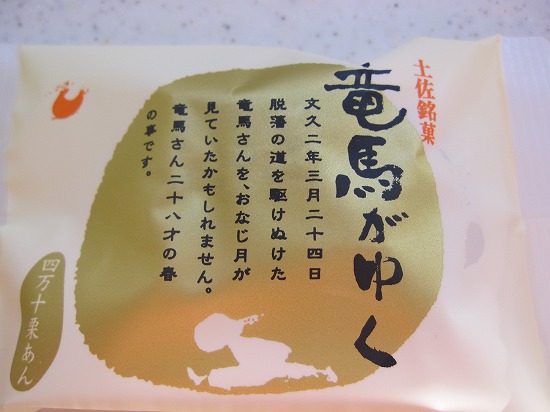 土佐銘菓
竜馬がゆく
文久二年三月二十四日
脱藩の道を駆けぬけた
竜馬さんを、おなじ月が
見ていたかもしれません。
竜馬さん二十八才の春
の事です。
四万十栗あん